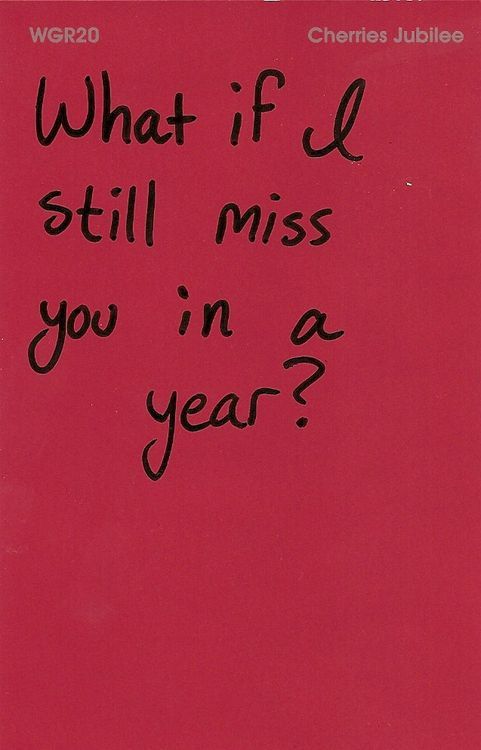 WGR20 Cherries Jubilee
What if I
still miss
you in a
year?